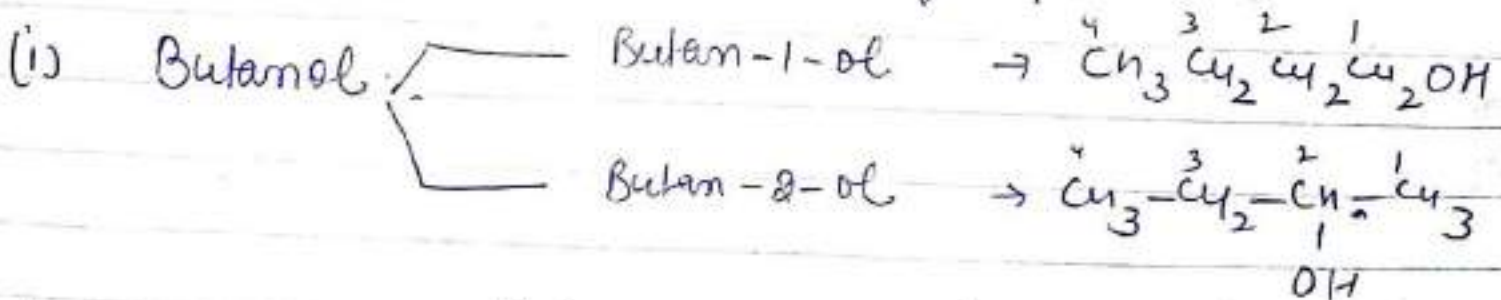 (i) Butanol Butan-1-ol → ⁴CH₃ ³CH₂ ²CH₂ ¹CH₂OH
Butan-2-ol → ⁴CH₃-³CH₂-²CH-¹CH₃
|
OH